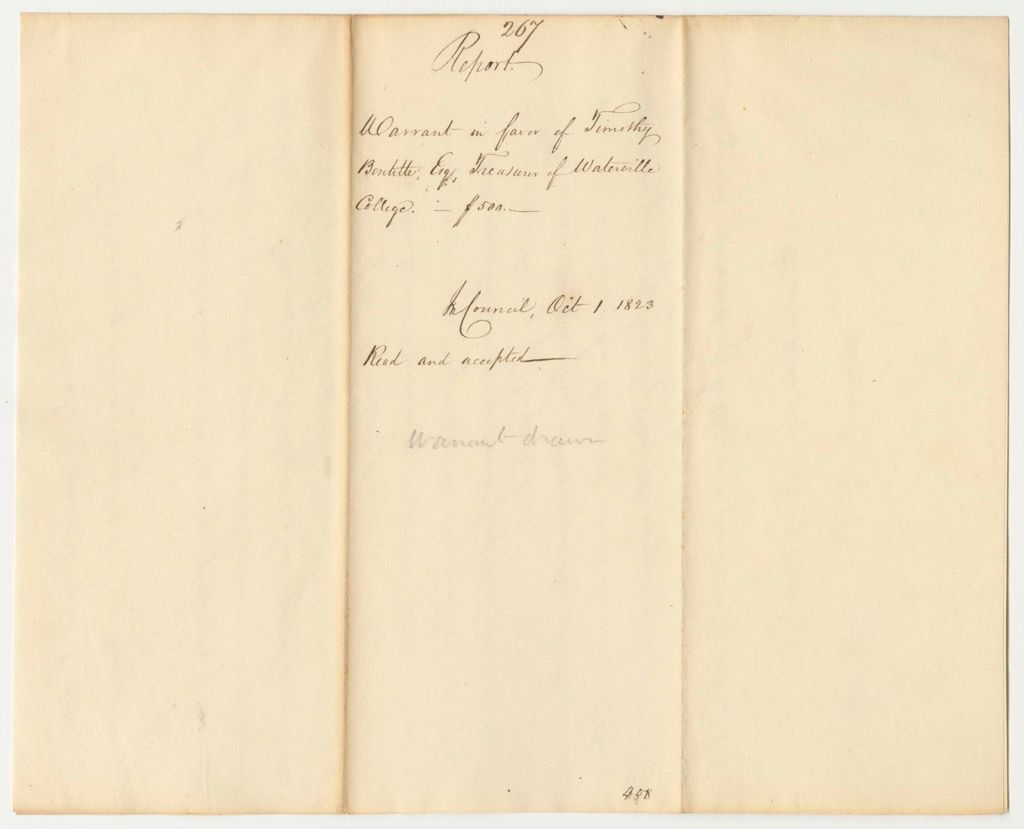 267
Report
Warrant in favor of Timothy
Boutelle, Esq, Treasurer of Waterville
College. — $500.—
In Council, Oct 1. 1823
Read and accepted
Warrant drawn